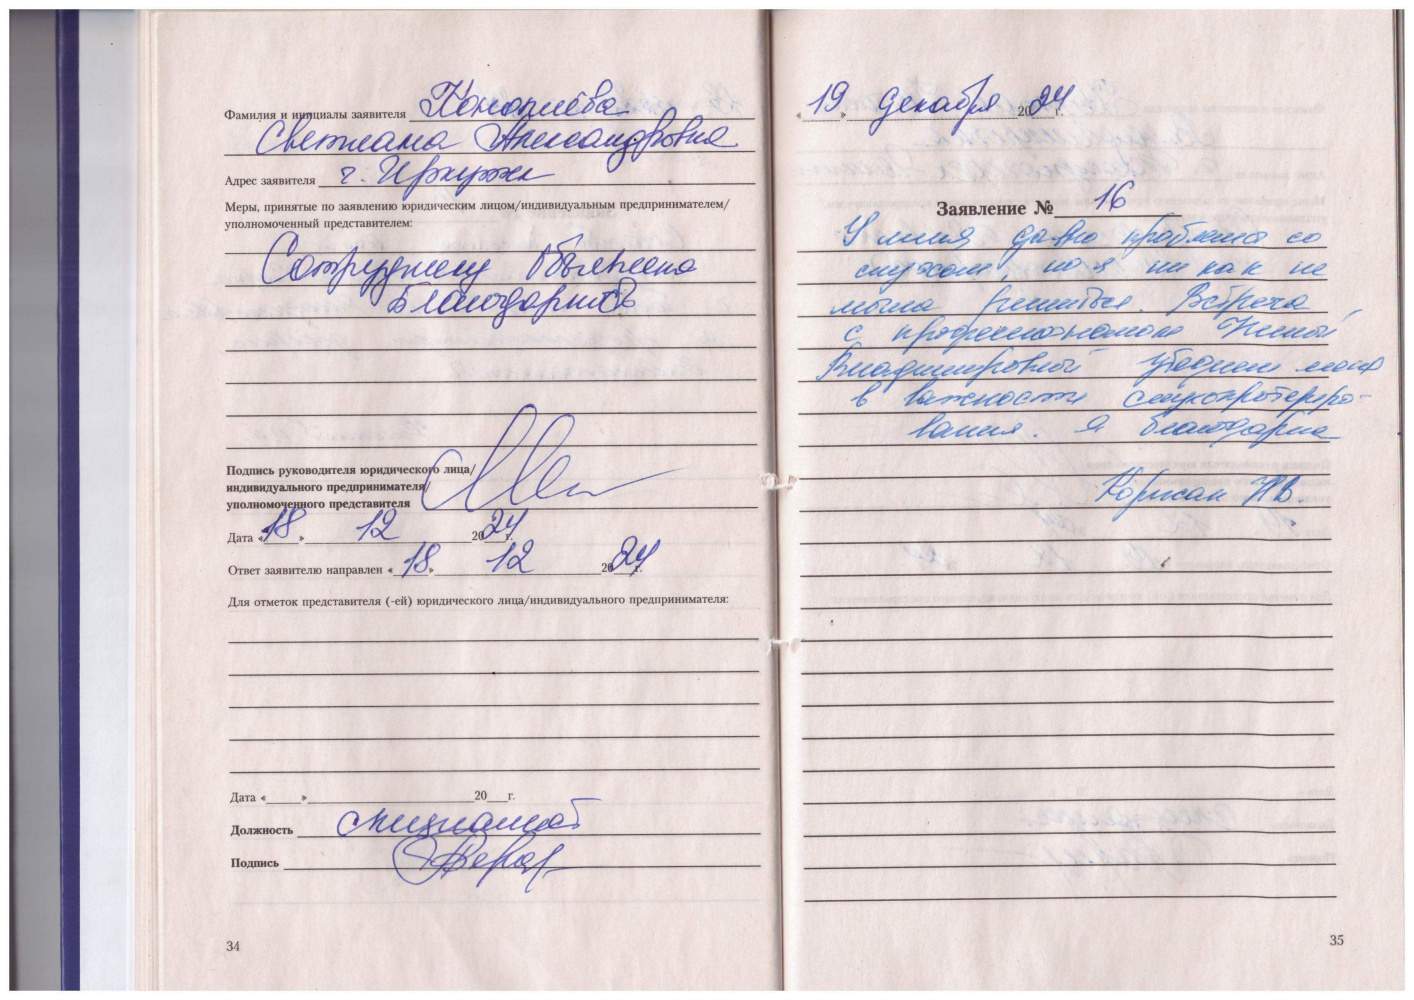 Фамилия и инициалы заявителя Конопиёва
Светлана Александровна
Адрес заявителя г. Иркутск
Меры, принятые по заявлению юридическим лицом/индивидуальным предпринимателем/
уполномоченный представителем:
Сотруднику объявлена
благодарность
Подпись руководителя юридического лица/
индивидуального предпринимателя/
уполномоченного представителя
Дата «18» 12 2024 г.
Ответ заявителю направлен «18» 12 2024 г.
Для отметок представителя (-ей) юридического лица/индивидуального предпринимателя:
Дата «     »          20   г.
Должность специалист
Подпись
34
«19» декабря 2024 г.
Заявление № 16
У меня давно проблема со
слухом, но я ни как не
могла решиться. Встреча
с профессионалом
Владимировной убедила меня
в важности слухопротезиро-
вания. Я благодарна
35